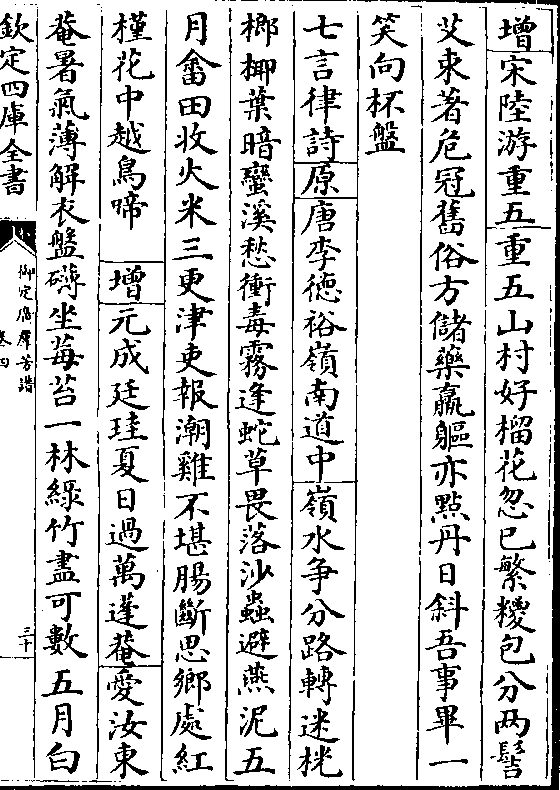 增宋陸游重五重五山村好榴花忽已繁糭包分兩髻
艾束著危冠舊俗方儲藥羸軀亦點丹日斜吾事畢一
笑向杯盤
七言律詩原唐李德裕嶺南道中嶺水争分路轉迷桄
榔椰葉暗蠻溪愁衝毒霧逢蛇草畏落沙蟲避燕泥五
月畬田收火米三更津吏報潮雞不堪腸斷思鄉處紅
槿花中越鳥啼 增元成廷珪夏日過萬蓬菴愛汝東
菴暑氣薄解衣盤礴坐莓苔一林綠竹盡可數 五月白
欽定四庫全書
御定廣羣芳譜
卷四
三十